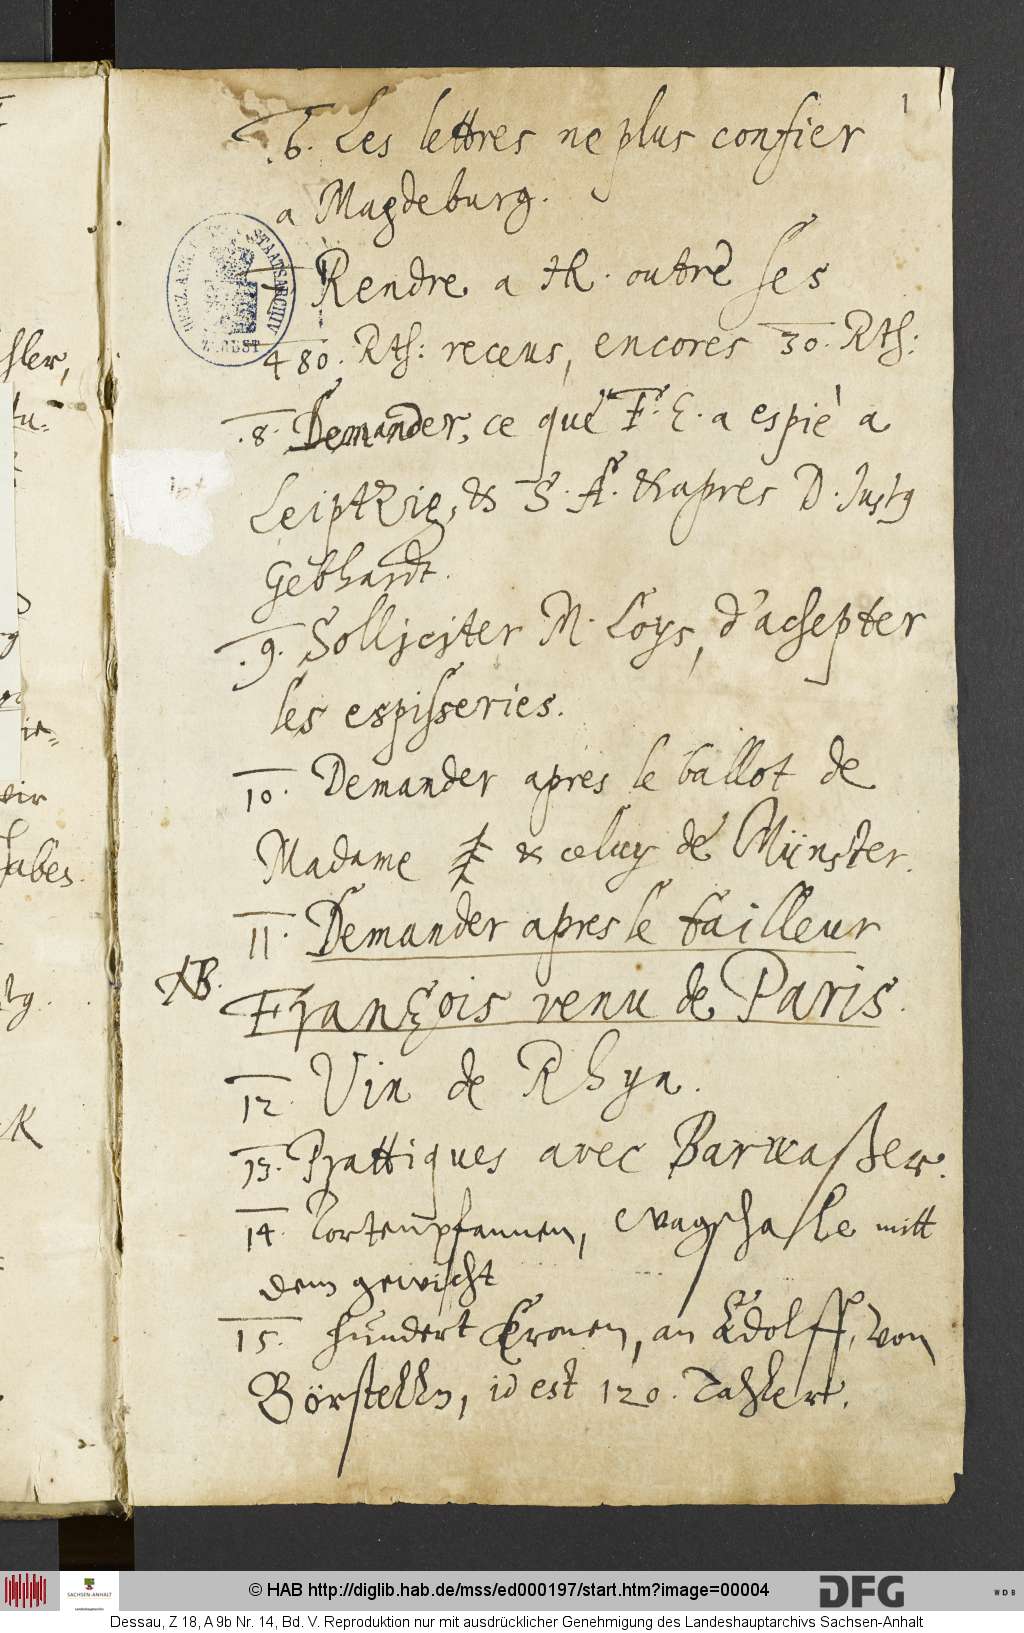 1
.6. Les lettres ne plus confier
a Magdeburg.
7 Rendre a tR. outre ses
480. Rth: receus, encores 30. Rth:
.8. Demander, ce que F. E. a espiè a
Leiptzig, & S. A. & apres D. Justg
Gebhardt.
.9. Sollicjter M. Loys, d'achepter
les espisseries.
10. Demander apres le ballot de
Madame & celuy de Münster.
11. Demander apres le tailleur
NB. François venu de Paris.
12. Vin de Rhyn.
13. Prattiques avec Barwaßer.
14. Tortenpfannen, Wagschalle mitt
dem gewicht
15. hundert Kronen, an Adolff, von
Börstelln, id est 120. Tahler.
HERZ. ANH. STAATSARCHIV
ZERBST
© HAB http://diglib.hab.de/mss/ed000197/start.htm?image=00004
SACHSEN-ANHALT
DFG
WDB
Dessau, Z 18, A 9b Nr. 14, Bd. V. Reproduktion nur mit ausdrücklicher Genehmigung des Landeshauptarchivs Sachsen-Anhalt